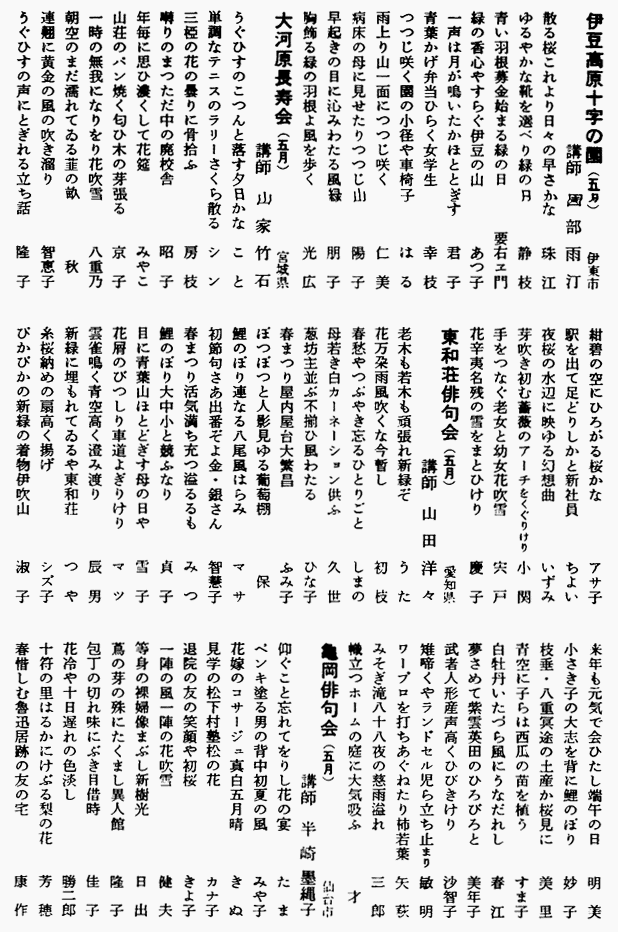 伊豆高原十字の園（五月） 伊東市
講師 園部雨汀
散る桜これより日々の早さかな 珠江
ゆるやかな靴を選べり緑の日 静枝
青い羽根募金始まる緑の日 要右ヱ門
緑の香心やすらぐ伊豆の山 あつ子
一声は月が鳴いたかほととぎす 君子
青葉かげ弁当ひらく女学生 幸枝
つつじ咲く園の小径や車椅子 はる
雨上り山一面につつじ咲く 仁美
病床の母に見せたりつつじ山 陽子
早起きの目に沁みわたる風緑 朋子
胸飾る緑の羽根よ風を歩く 光広
大河原長寿会（五月） 宮城県
講師 山家竹石
うぐひすのこつんと落す夕日かな こと
単調なテニスのラリーさくら散る シン
三椏の花の曇りに骨拾ふ 房枝
囀りのまつただ中の廃校舎 昭子
年毎に思ひ濃くして花筵 みやこ
山荘のパン焼く匂ひ木の芽張る 京子
一時の無我になりをり花吹雪 八重乃
朝空のまだ濡れてゐる韮の畝 秋
連翹に黄金の風の吹き溜り 智恵子
うぐひすの声にとぎれる立ち話 隆子
紺碧の空にひろがる桜かな アサ子
駅を出て足どりしかと新社員 ちよい
夜桜の水辺に映ゆる幻想曲 いずみ
芽吹き初む薔薇のアーチをくぐりけり 小関
手をつなぐ老女と幼女花吹雪 宍戸
花辛夷名残の雪をまとひけり 慶子
東和荘俳句会（五月） 愛知県
講師 山田洋々
老木も若木も頑張れ新緑ぞ うた
花万朶雨風吹くな今暫し 初枝
春愁やつぶやき忘るひとりごと しまの
母若き白カーネーション供ふ 久世
葱坊主並ぶ不揃ひ風わたる ひな子
春まつり屋内屋台大繁昌 ふみ子
ぽつぽつと人影見ゆる葡萄棚 保
鯉のぼり連なる八尾風はらみ マサ
初節句さあ出番ぞよ金・銀さん 智慧子
春まつり活気満ち充つ溢るるも みつ
鯉のぼり大中小と競ふなり 貞子
目に青葉山ほととぎす母の日や 雪子
花屑のびつしり車道よぎりけり マツ
雲雀鳴く青空高く澄み渡り 辰男
新緑に埋もれてゐるや東和荘 つや
糸桜納めの扇高く揚げ シズ子
ぴかぴかの新緑の着物伊吹山 淑子
来年も元気で会ひたし端午の日 明美
小さき子の大志を背に鯉のぼり 妙子
枝垂・八重冥途の土産か桜見に 美里
青空に子らは西瓜の苗を植う すま子
白牡丹いたづら風にうなだれし 春江
夢さめて紫雲英田のひろびろと 美年子
武者人形産声高くひびきけり 沙智子
雉啼くやランドセル児ら立ち止まり 敏明
ワープロを打ちあぐねたり柿若葉 矢萩
みそぎ滝八十八夜の慈雨溢れ 三郎
幟立つホームの庭に大気吸ふ 才
亀岡俳句会（五月） 仙台市
講師 半崎墨縄子
仰ぐこと忘れてをりし花の宴 たま
ペンキ塗る男の背中初夏の風 みや子
花嫁のコサージュ真白五月晴 きぬ
見学の松下村塾松の花 カナ子
退院の友の笑顔や初桜 きよ子
一陣の風一陣の花吹雪 健夫
等身の裸婦像まぶし新樹光 日出
蔦の芽の殊にたくまし異人館 隆子
包丁の切れ味にぶき目借時 佳子
花冷や十日遅れの色淡し 勝二郎
十符の里はるかにけぶる梨の花 芳穂
春惜しむ魯迅居跡の友の宅 康作